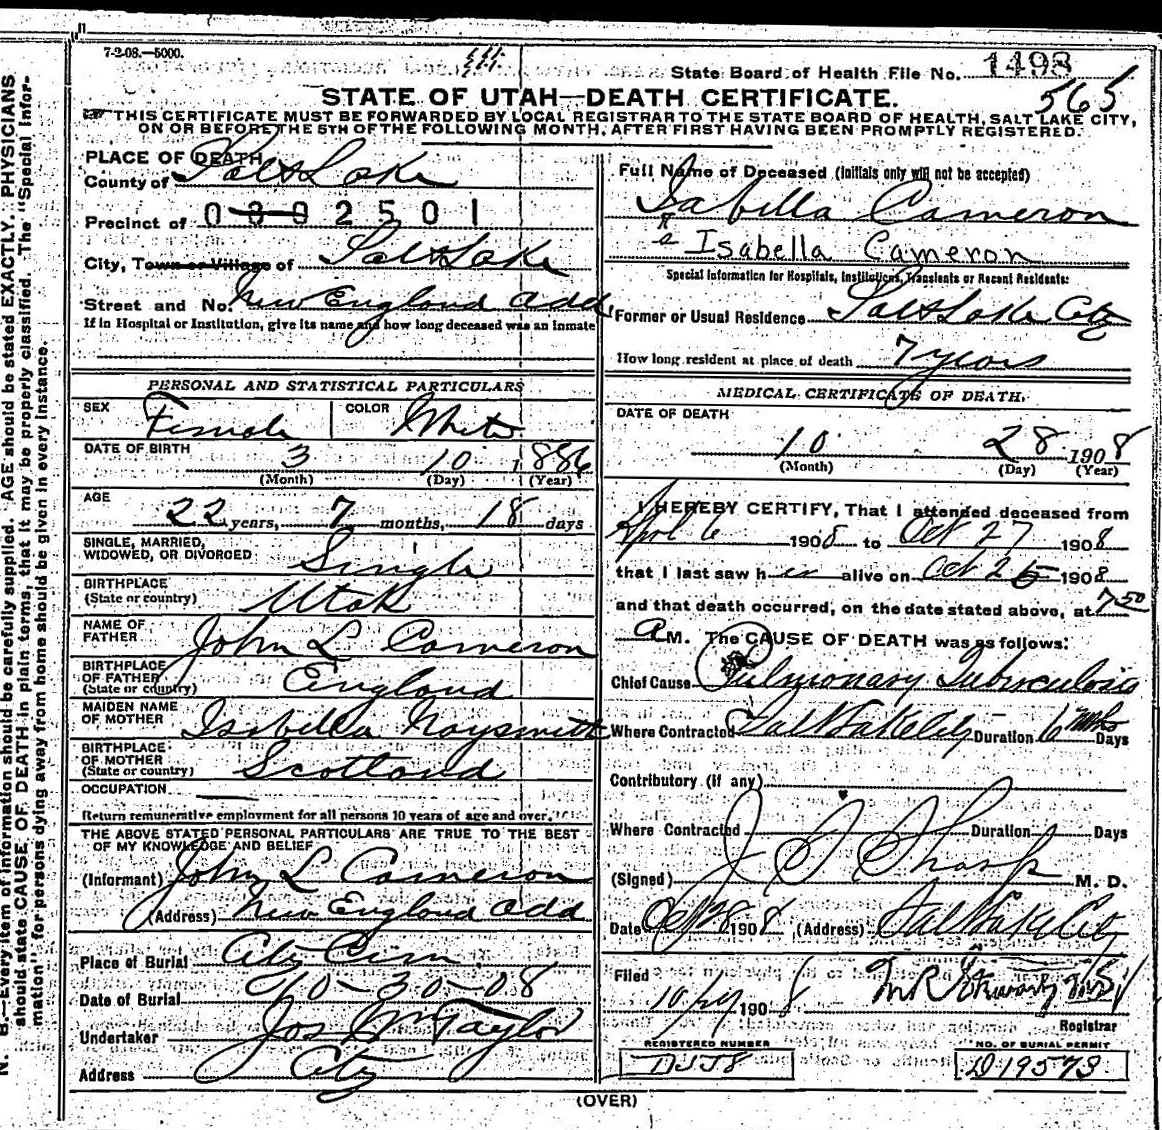 7-2-08.—5000.
State Board of Health File No. 1493
565
STATE OF UTAH—DEATH CERTIFICATE.
THIS CERTIFICATE MUST BE FORWARDED BY LOCAL REGISTRAR TO THE STATE BOARD OF HEALTH, SALT LAKE CITY,
ON OR BEFORE THE 5TH OF THE FOLLOWING MONTH, AFTER FIRST HAVING BEEN PROMPTLY REGISTERED.
PLACE OF DEATH
County of Salt Lake
Precinct of 0 3 9 2 5 0 1
City, Town or Village of Salt Lake
Street and No. New England Add
If in Hospital or Institution, give its name and how long deceased was an inmate
PERSONAL AND STATISTICAL PARTICULARS
SEX Female COLOR White
DATE OF BIRTH 3 10 1886
(Month) (Day) (Year)
AGE
22 years, 7 months, 18 days
SINGLE, MARRIED,
WIDOWED, OR DIVORCED Single
BIRTHPLACE
(State or country) Utah
NAME OF
FATHER John L Cameron
BIRTHPLACE
OF FATHER
(State or country) England
MAIDEN NAME
OF MOTHER Isabella Naysmith
BIRTHPLACE
OF MOTHER
(State or country) Scotland
OCCUPATION
Return remunerative employment for all persons 10 years of age and over.
THE ABOVE STATED PERSONAL PARTICULARS ARE TRUE TO THE BEST
OF MY KNOWLEDGE AND BELIEF
(Informant) John L Cameron
(Address) New England Add
Place of Burial City Cem
Date of Burial 10-30-08
Undertaker Jos Wm Taylor
Address City
Full Name of Deceased (Initials only will not be accepted)
Isabella Cameron
Isabella Cameron
Special Information for Hospitals, Institutions, Transients or Recent Residents:
Former or Usual Residence Salt Lake City
How long resident at place of death 7 years
MEDICAL CERTIFICATE OF DEATH.
DATE OF DEATH
10 28 1908
(Month) (Day) (Year)
I HEREBY CERTIFY, That I attended deceased from
April 6 1908 to Oct 27 1908
that I last saw her alive on Oct 1908
and that death occurred, on the date stated above, at 7 50
A M. The CAUSE OF DEATH was as follows:
Chief Cause Pulmonary Tuberculosis
Where Contracted Salt Lake City Duration 6 mos Days
Contributory (if any)
Where Contracted Duration Days
(Signed) J F Sharp M. D.
Date Oct 28 1908 (Address) Salt Lake City
Filed 10/29 1908
Registrar
REGISTERED NUMBER
NO. OF BURIAL PERMIT
D 19573
(OVER)
N. B.—Every item of information should be carefully supplied. AGE should be stated EXACTLY. PHYSICIANS
should state CAUSE OF DEATH in plain terms, that it may be properly classified. The "Special Infor-
mation" for persons dying away from home should be given in every instance.